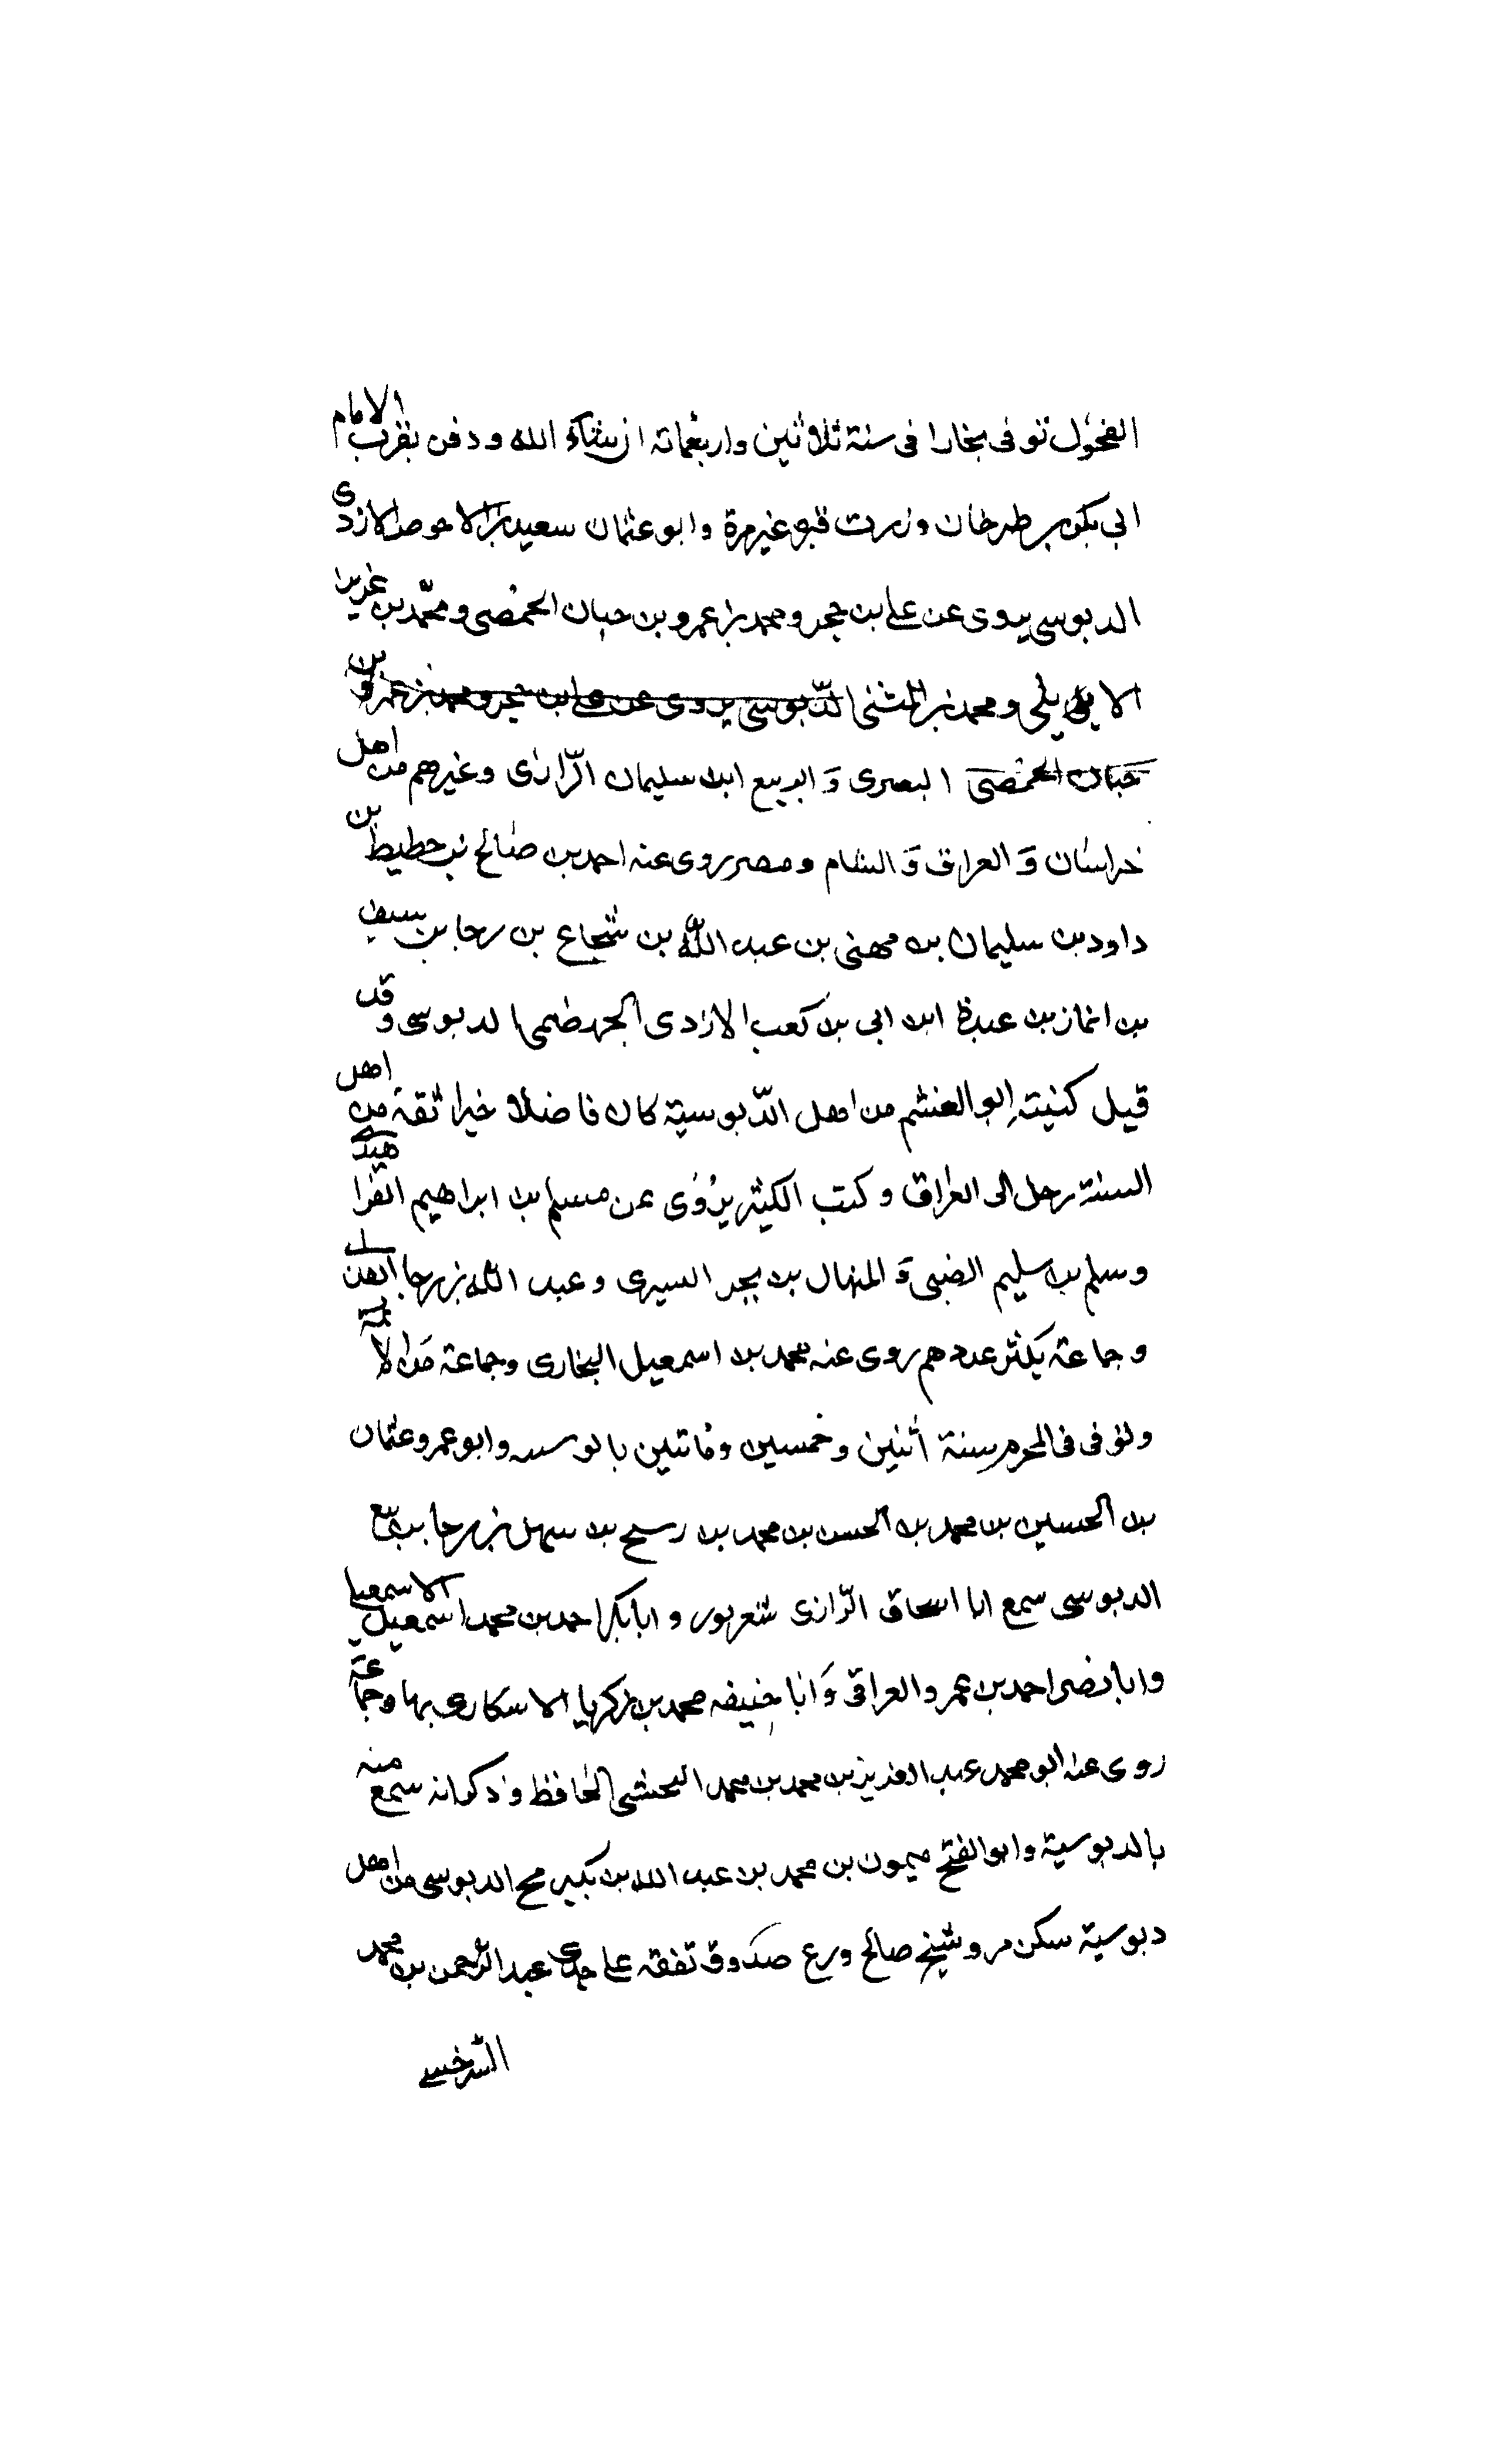 الفحول توفى بخارا فى سنة ثلاثين واربعمائه ان شاء الله ودفن بقرب الامام
ابى بكر بن طرخان وزرت قبره غير مرة وابو عثمان سعيد بن الاحوص الازدى
الدبوسى يروى عن على بن حجر ومحمد بن عمرو بن حبان الحمصى ومحمد بن عزيز
الايلى ومحمد بن المثنى الدبوسى يروى عن على بن حجر ومحمد بن عمرو بن
حبان الحمصى البصرى وَ الربيع ابن سليمان الرّازى وغيرهم من اهل
خراسان وَ العراق وَ الشام ومصر روى عنه احمد بن صالح بن حطيط بن
داود بن سليمان بن مهنى بن عبد اللّه بن شجاع بن رجا بن سيف
بن انمار بن عبدة ابن ابى بن كعب الازدى الجهضمى الدبوسى وقد
قيل كنيته ابو العنشم من اهل الدّبوسية كان فاضلا خيرا ثقة من اهل
السنة رحل الى العراق وكتب الكثير يروى عن مسلم بن ابراهيم الفرا هيدى
وسلم بن سليم الضبى وَ المنهال بن بحر السيرى وعبد اللّه بن رجا
وجماعة يكثر عددهم روى عنه محمد بن اسمعيل البخارى وجماعة من الا ئمة
وتوفى فى المحرم سنة اثنين وخمسين ومائتين وابو عمرو عثمان
بن الحسين بن محمد بن الحسن بن محمد بن بن سهل بن رجا بن
الدبوسى سمع ابا اسحاق الرّازى وابا بكر احمد بن محمد اسمعيل الاسمعيلى
وابا نصر احمد بن عمرو العراقى وَ ابا حنيفه محمد بن زكريا بها وجماعة
روى عنه ابو محمد عبد العزيز بن محمد بن محمد النخشبى الحافظ وذكر انه سمع منه
بالدبوسية وابو الفتح ميمون بن محمد بن عبد الله بن بكير مح الدبوسى من اهل
دبوسية سكن مرو شيخ صالح ورع صدوق تفقه على جدى عبد الرّحمن بن محمد
السّرخسى